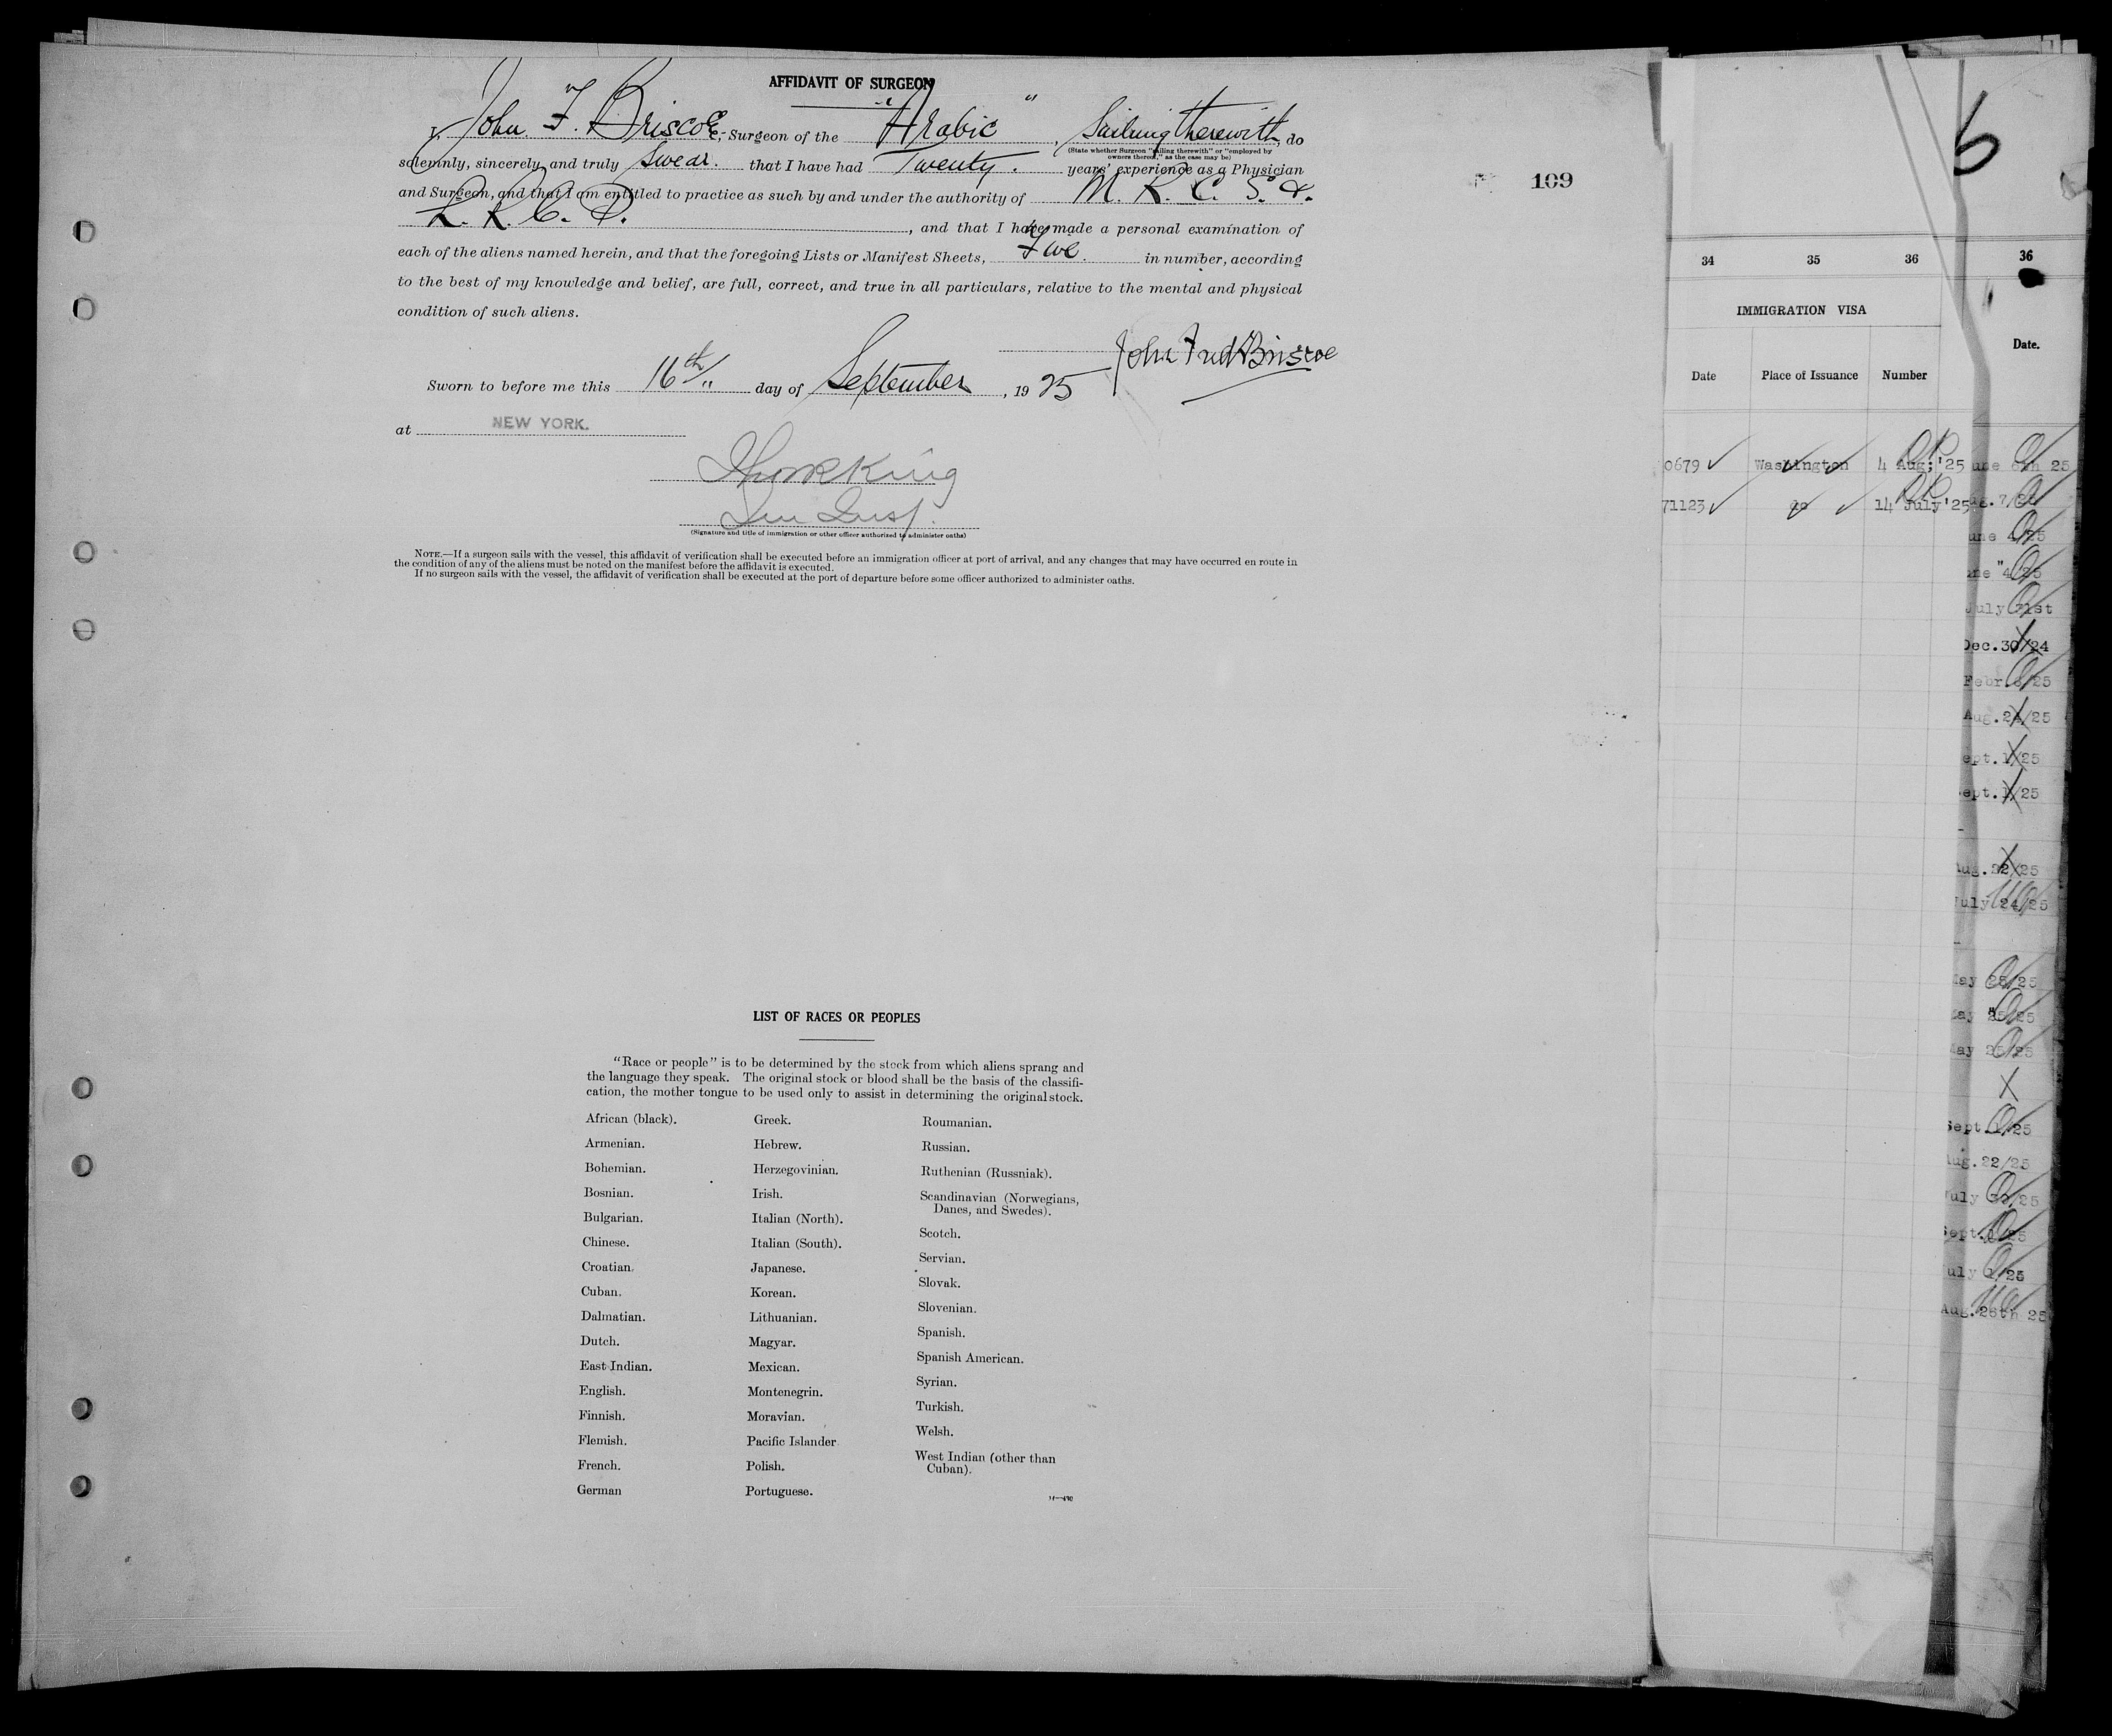 AFFIDAVIT OF SURGEON
I, John F. Briscoe, Surgeon of the "Arabic", Sailing therewith, do
(State whether Surgeon "sailing therewith" or "employed by
owners thereof," as the case may be)
solemnly, sincerely, and truly swear. that I have had Twenty. years' experience as a Physician
and Surgeon, and that I am entitled to practice as such by and under the authority of M. R. C. S. &.
L. R. C. P. , and that I have made a personal examination of
each of the aliens named herein, and that the foregoing Lists or Manifest Sheets, in number, according
to the best of my knowledge and belief, are full, correct, and true in all particulars, relative to the mental and physical
condition of such aliens.
John Fredk Briscoe
Sworn to before me this 16th day of September, 1925
at NEW YORK.
King
Imm Insp.
(Signature and title of immigration or other officer authorized to administer oaths)
NOTE.—If a surgeon sails with the vessel, this affidavit of verification shall be executed before an immigration officer at port of arrival, and any changes that may have occurred en route in
the condition of any of the aliens must be noted on the manifest before the affidavit is executed.
If no surgeon sails with the vessel, the affidavit of verification shall be executed at the port of departure before some officer authorized to administer oaths.
109
LIST OF RACES OR PEOPLES
"Race or people" is to be determined by the stock from which aliens sprang and
the language they speak. The original stock or blood shall be the basis of the classifi-
cation, the mother tongue to be used only to assist in determining the original stock.
African (black).
Armenian.
Bohemian.
Bosnian.
Bulgarian.
Chinese.
Croatian.
Cuban.
Dalmatian.
Dutch.
East Indian.
English.
Finnish.
Flemish.
French.
German
Greek.
Hebrew.
Herzegovinian.
Irish.
Italian (North).
Italian (South).
Japanese.
Korean.
Lithuanian.
Magyar.
Mexican.
Montenegrin.
Moravian.
Pacific Islander
Polish.
Portuguese.
Roumanian.
Russian.
Ruthenian (Russniak).
Scandinavian (Norwegians,
Danes, and Swedes).
Scotch.
Servian.
Slovak.
Slovenian.
Spanish.
Spanish American.
Syrian.
Turkish.
Welsh.
West Indian (other than
Cuban).
34 35 36
IMMIGRATION VISA
Date Place of Issuance Number
0679 Washington 4 Aug; '25
71123 do 14 July '25
6
36
Date.
une 6th 25
7/25
une 4/25
ne "4/25
July 21st
Dec.30/24
Febr. /25
Aug.24/25
ept.1/25
ept.1/25
Aug.22/25
July 24/25
May 25/25
ay 25/25
May 25/25
X
Sept.1/25
Aug.22/25
uly /25
Sept. /25
uly 1/25
Aug.26th 25